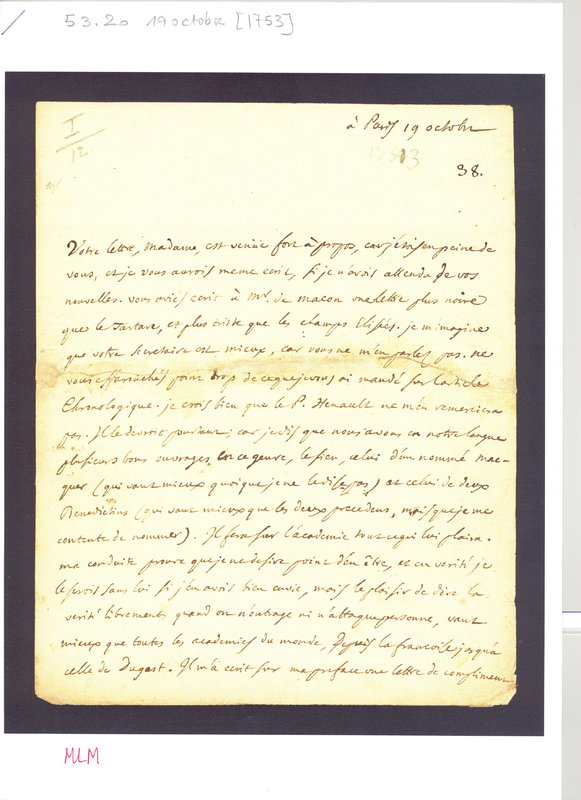 53.20 19 octobre [1753]
I
12
à Paris 19 octobre
1753
38.
Votre lettre, Madame, est venüe fort à propos, car j'étois en peine de
vous, et je vous aurois meme ecrit, si je n'avois attendu de vos
nouvelles. vous aviés ecrit à Mr. de macon une lettre plus noire
que le Tartare, et plus triste que les champs Elisées. je m'imagine
que votre secretaire est mieux, car vous ne m'en parlés pas. ne
vous effarouchés point trop de ce que je vous ai mandé sur l'article
Chronologique. je crois bien que le P. Henault ne m'en remerciera
pas. Il le devroit pourtant; car je dis que nous avons en notre langue
plusieurs bons ouvrages en ce genre, le sien, celui d'un nommé mac-
quer (qui vaut mieux quoique je ne le dise pas) et celui de deux
Benedictins (qui vaut mieux que les deux precedens, mais que je me
contente de nommer). Il fera sur l'académie tout ce qui lui plaira.
ma conduite prouve que je ne desire point d'en être, et en verité je
le serois sans lui si j'en avois bien envie, mais le plaisir de dire la
verité librement quand on n'outrage ni n'attaque personne, vaut
mieux que toutes les academies du monde, depuis la francoise jusqu'à
celle de Dugast. Il m'a ecrit sur ma preface une lettre de compliment
MLM